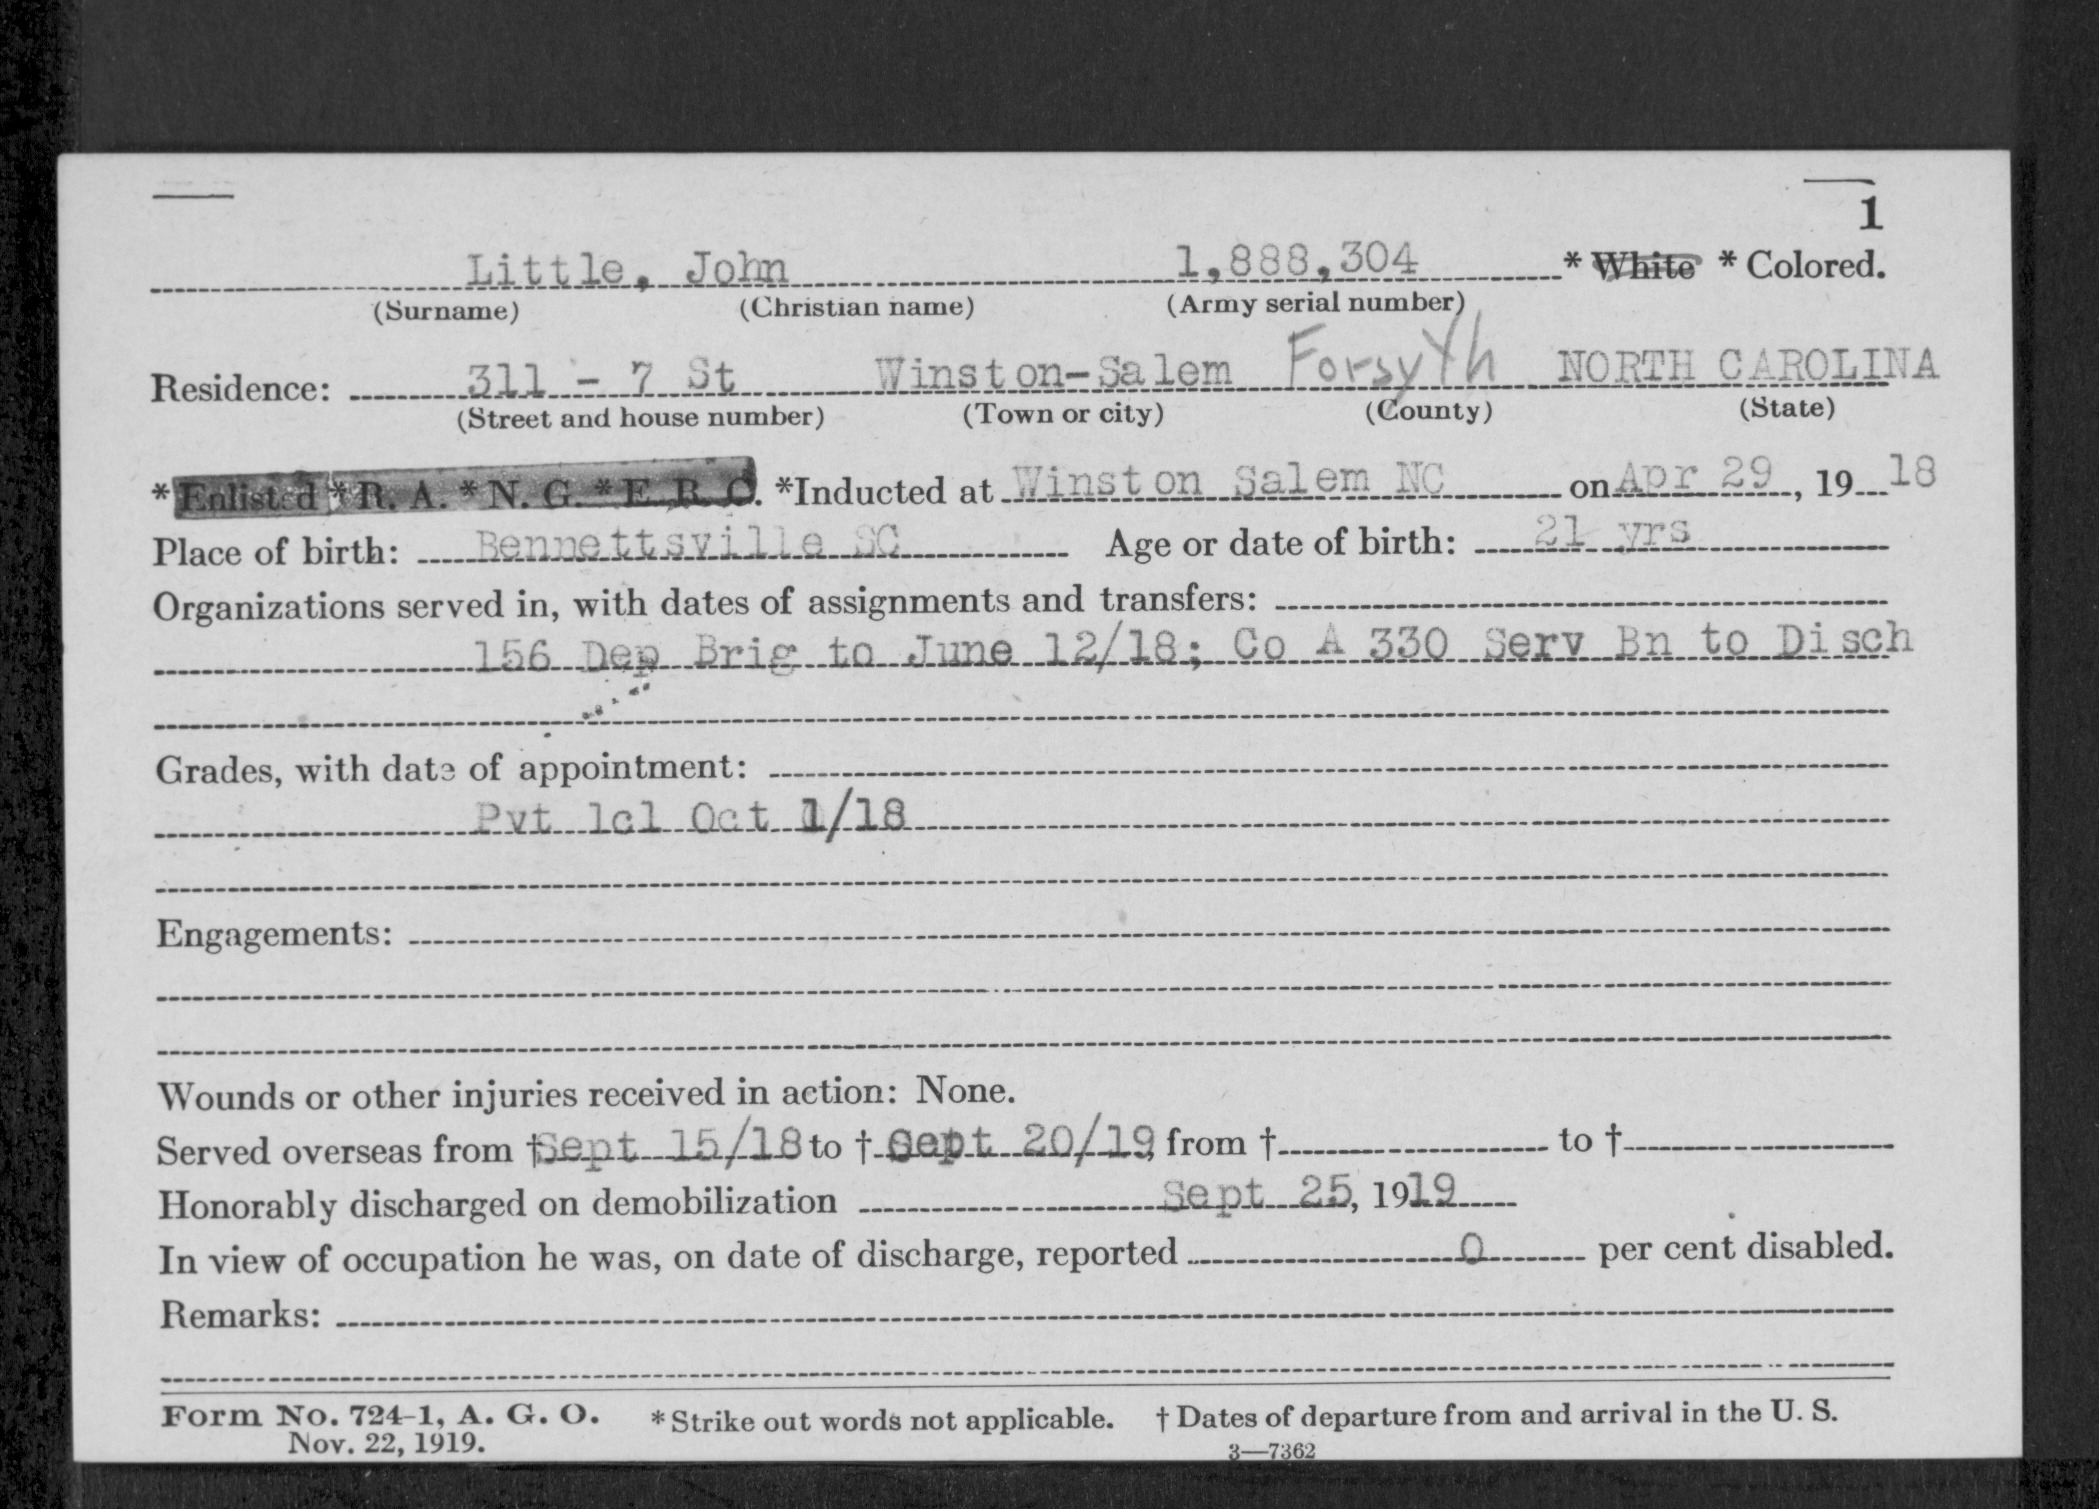 1
Little, John 1,888,304 * White * Colored.
(Surname) (Christian name) (Army serial number)
Residence: 311 - 7 St Winston-Salem Forsyth NORTH CAROLINA
(Street and house number) (Town or city) (County) (State)
* Enlisted * R. A. * N. G. * E. R. C. *Inducted at Winston Salem NC on Apr 29, 19 18
Place of birth: Bennettsville SC Age or date of birth: 21 yrs
Organizations served in, with dates of assignments and transfers:
156 Dep Brig to June 12/18; Co A 330 Serv Bn to Disch
Grades, with date of appointment:
Pvt 1cl Oct 1/18
Engagements:
Wounds or other injuries received in action: None.
Served overseas from † Sept 15/18 to † Sept 20/19, from † to †
Honorably discharged on demobilization Sept 25, 1919
In view of occupation he was, on date of discharge, reported 0 per cent disabled.
Remarks:
Form No. 724-1, A. G. O. * Strike out words not applicable. † Dates of departure from and arrival in the U. S.
Nov. 22, 1919. 3—7362